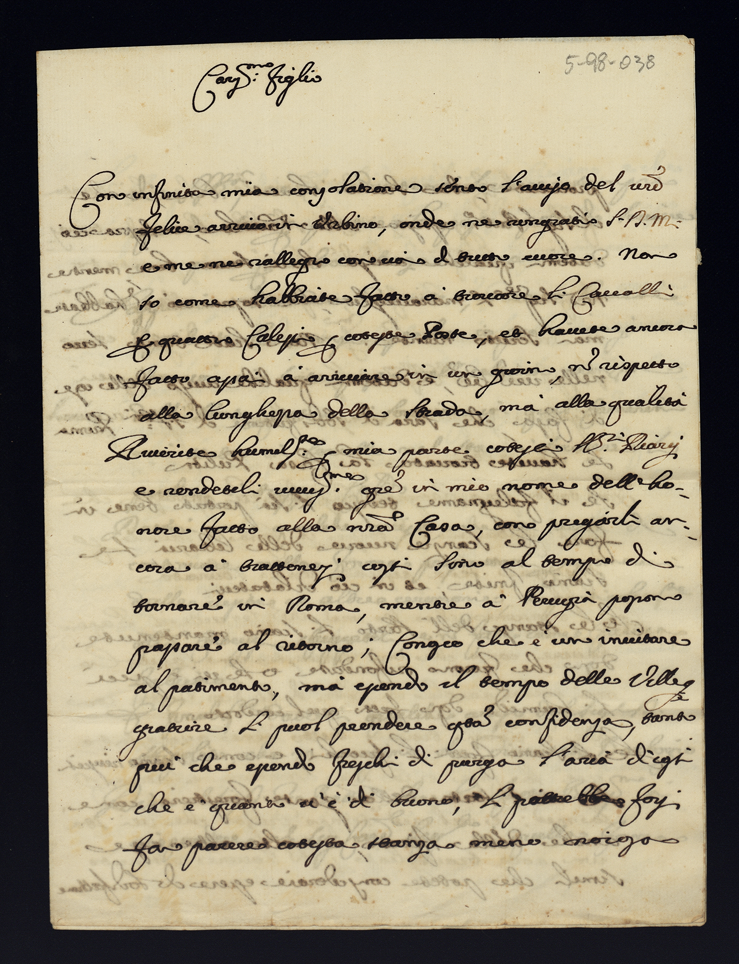 5-98-038
Car.mo figlio
Con infinita mia consolatione sento l'auiso del vro
felice arriuo in Urbino, onde ne ringratio S. D. M.
e me ne rallegro con uoi di tutto cuore. Non
so come habbiate fatto à trouare li Caualli
p quattro Calessi p coteste Poste, et hauete ancora
fatto assai à arriuare in un giorno, nõ rispetto
alla lunghezza della strada, mà alla qualità
Riuerite humil.te p mia parte cotesti SS.ri
e rendeteli uiuiss.me gre in mio nome dell'ho-
nore fatto alla nra Casa, con pregarli an-
cora à trattenersi costi sino al tempo di
tornare in Roma, mentre à Perugia posson
passare al ritorno; Conosco che è un inuitare
al patimento, mà essendo il tempo delle Villeg
giature si puol prendere qta confidenza, tanto
più che essendo freschi di purga l'aria di costi
che è quanto u'è di buono, li potrebbe forsi
far parere cotesta stanza meno noiosa